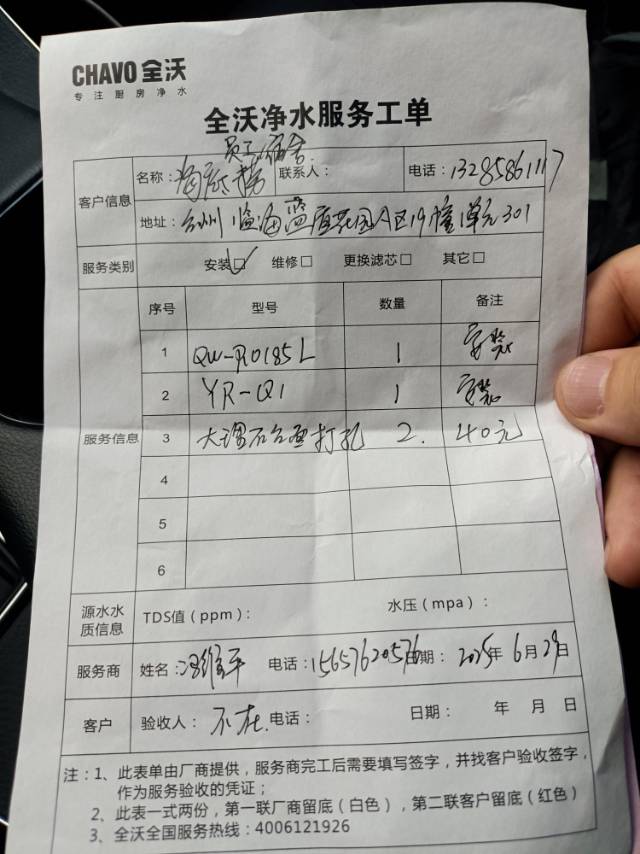 CHAVO全沃
专注厨房净水
全沃净水服务工单
员工宿舍
客户信息 名称：海底捞 联系人： 电话：13285861117
地址：台州临海蓝庭花园A区19幢1单元301
服务类别 安装☑ 维修□ 更换滤芯□ 其它□
服务信息
序号 型号 数量 备注
1 QW-R0185L 1 安装
2 YR-Q1 1 安装
3 大理石台面打孔 2. 40元
4
5
6
源水水质信息 TDS值（ppm）： 水压（mpa）：
服务商 姓名：冯维平 电话：15657620576 日期：2025年6月29日
客户 验收人：不在. 电话： 日期： 年 月 日
注：1、此表单由厂商提供，服务商完工后需要填写签字，并找客户验收签字，
作为服务验收的凭证；
2、此表一式两份，第一联厂商留底（白色），第二联客户留底（红色）
3、全沃全国服务热线：4006121926